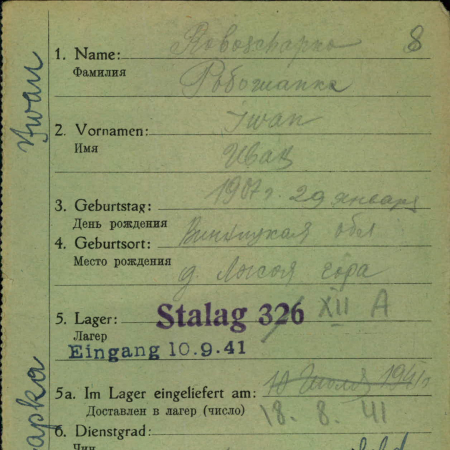 8
1. Name: Roboschapko
Фамилия Робошапка
2. Vornamen: Iwan
Имя Иван
3. Geburtstag: 1907 г. 29 января
День рождения
4. Geburtsort: Винницкая обл
Место рождения д. Лысая гора
5. Lager: Stalag 326 / XII A
Лагерь
Eingang 10.9.41
5a. Im Lager eingeliefert am: 10 Июля 1941 г.
Доставлен в лагерь (число) 18. 8. 41
6. Dienstgrad:
Чин
Iwan